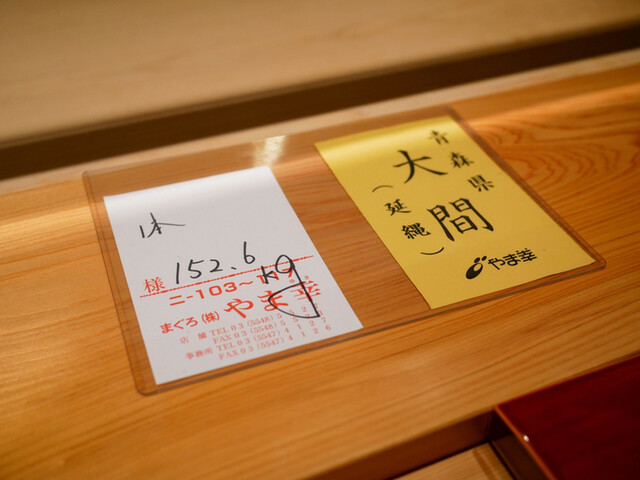 様 152.6 kg
ニ-103~117
まぐろ(株)やま幸
店舗 TEL 03(5548)
FAX 03(5548)
事務所 TEL 03(5547)4127
FAX 03(5547)4126
青森県
大間
(延縄)
やま幸